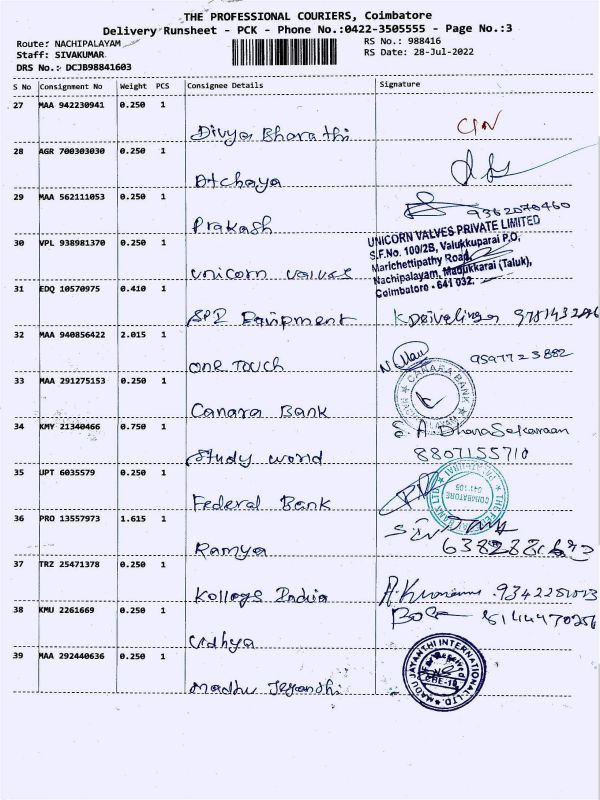 THE PROFESSIONAL COURIERS, Coimbatore
Delivery Runsheet - PCK - Phone No.:0422-3505555 - Page No.:3
Route: NACHIPALAYAM
Staff: SIVAKUMAR
DRS No.: DCJB98841603
RS No.: 988416
RS Date: 28-Jul-2022
S No Consignment No Weight PCS Consignee Details Signature
27 MAA 942230941 0.250 1
Divya Bharathi
28 AGR 700303030 0.250 1
Atchaya
29 MAA 562111053 0.250 1
Prakash 9362070460
30 VPL 938981370 0.250 1
Unicorn valves
UNICORN VALVES PRIVATE LIMITED
S.F.No. 100/2B, Valukkuparai P.O,
Marichettipathy Road,
Nachipalayam, Madukkarai (Taluk),
Coimbatore - 641 032.
31 EDQ 10570975 0.410 1
Equipment
32 MAA 940856422 2.015 1
one Touch 9597723882
33 MAA 291275153 0.250 1
Canara Bank
CANARA BANK
34 KMY 21340466 0.750 1
Study world
8807155710
35 JPT 6035579 0.250 1
Federal Bank
COIMBATORE
36 PRO 13557973 1.615 1
Ramya
37 TRZ 25471378 0.250 1
India
38 KMU 2261669 0.250 1
Vidhya 8144470256
39 MAA 292440636 0.250 1
Madhu Jeyanthi
MADU JAYANTHI INTERNATIONAL